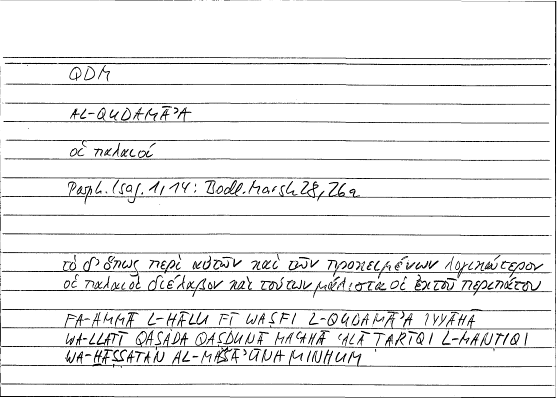 QDM
AL-QUDAMĀʾA
οἱ παλαιοί
Porph. Isag. 1,14: Bodl. Marsh 28, 26a
τὸ δ' ὅπως περὶ αὐτῶν καὶ τῶν προκειμένων λογικώτερον
οἱ παλαιοὶ διέλαβον καὶ τούτων μάλιστα οἱ ἐκ τοῦ περιπάτου
FA-AMMĀ L-ḤĀLU FĪ WAṢFI L-QUDAMĀʾA IYYĀHĀ
WA-LLATĪ QAṢADA QAṢDUNĀ MAʿAHĀ ʿALĀ ṬARĪQI L-MANṬIQI
WA-ḪĀṢṢATAN AL-MAŠŠĀʾŪNA MINHUM